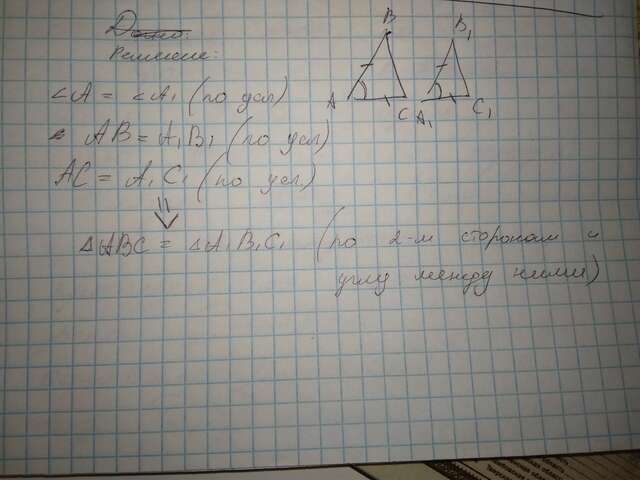 Дано:
Решение:
∠A = ∠A₁ (по усл)
AB = A₁B₁ (по усл)
AC = A₁C₁ (по усл)
⇓
△ABC = △A₁B₁C₁ (по 2-м сторонам и
углу между ними)
B
A
C
B₁
A₁
C₁